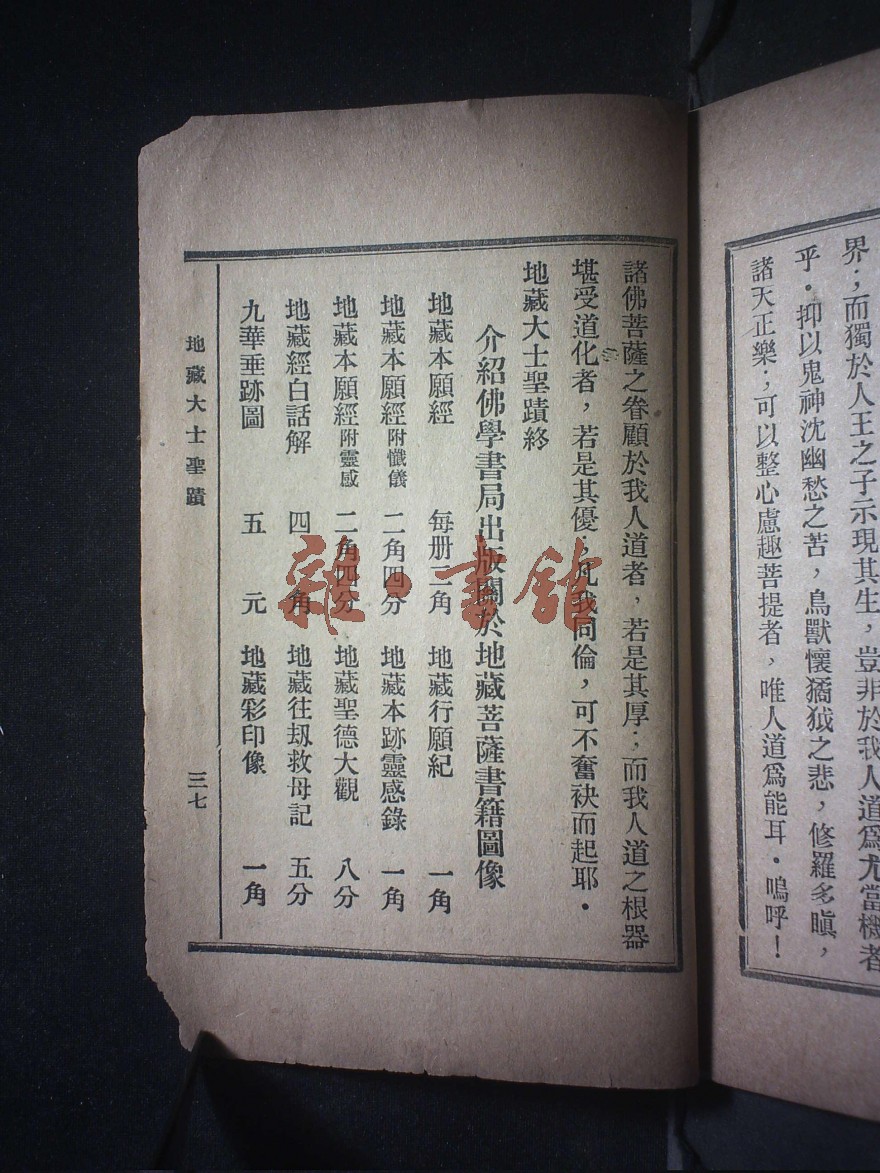 界；而獨於人王之子示現其生，豈非於我人道爲尤當機者
乎．抑以鬼神沈幽愁之苦，鳥獸懷獝狘之悲，修羅多瞋，
諸天正樂；可以整心慮趣菩提者，唯人道爲能耳．嗚呼！
諸佛菩薩之眷顧於我人道者，若是其厚；而我人道之根器
堪受道化者，若是其優，凡我同倫，可不奮袂而起耶．
地藏大士聖蹟終
介紹佛學書局出版關於地藏菩薩書籍圖像
地藏本願經 每册二角 地藏行願紀 一角
地藏本願經附懺儀 二角四分 地藏本跡靈感錄 一角
地藏本願經附靈感 二角四分 地藏聖德大觀 八分
地藏經白話解 四角 地藏往刼救母記 五分
九華垂跡圖 五元 地藏彩印像 一角
地藏大士聖蹟
三七
雜·書館